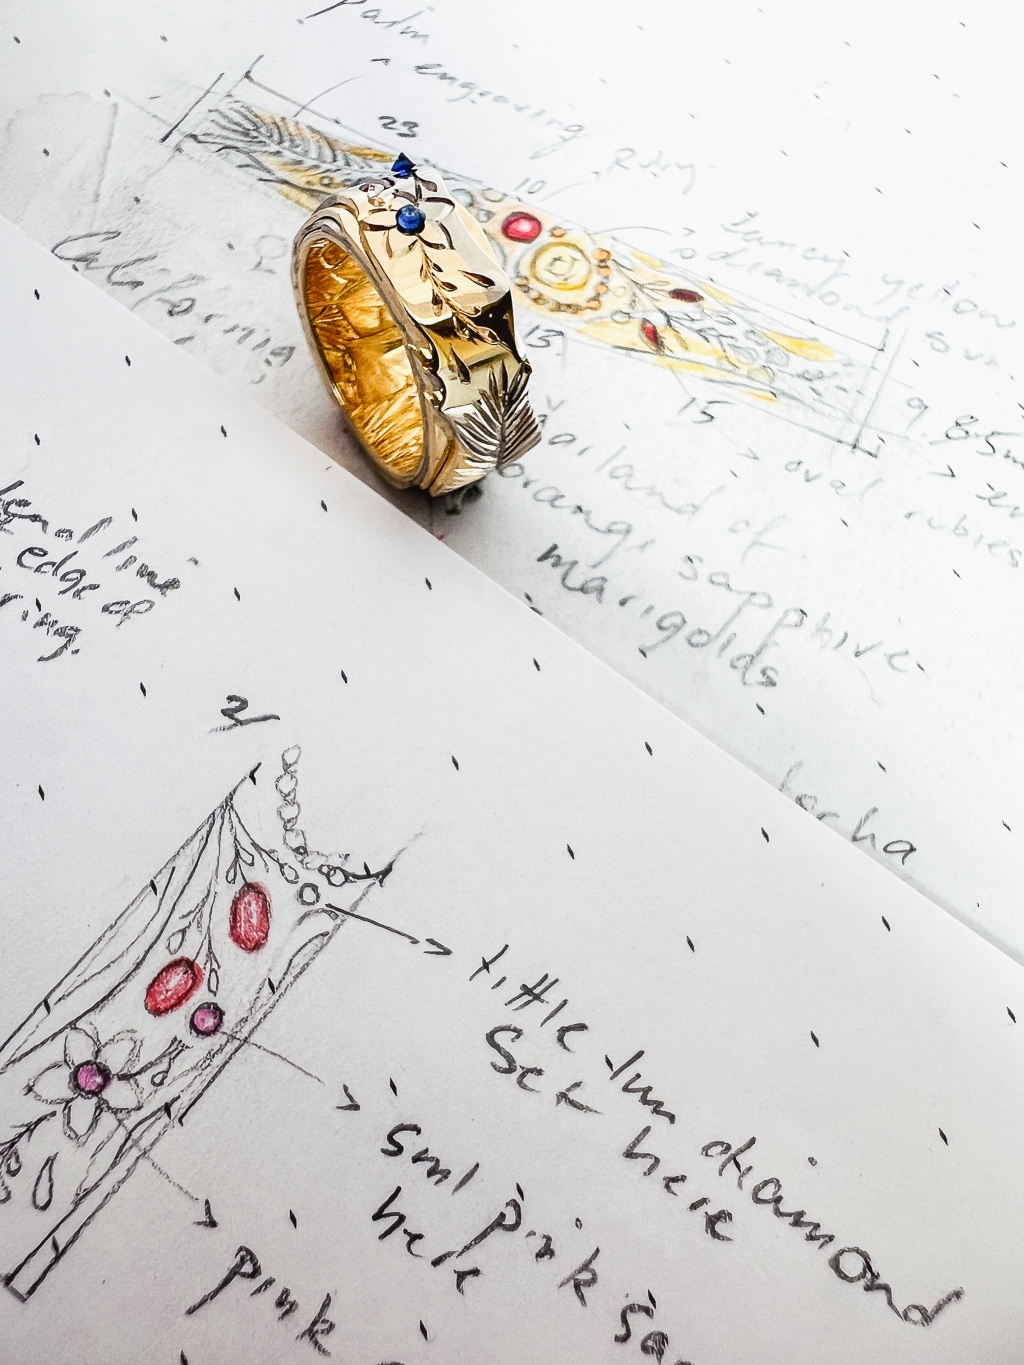 palm
engraving
23
Ruby
10
fancy yellow
diamond sun
California
13
15
9.85m
oval rubies
garland of
orange sapphire
marigolds
edge of
ring.
2
little 1mm diamond
Set here
sml pink sa
here
pink